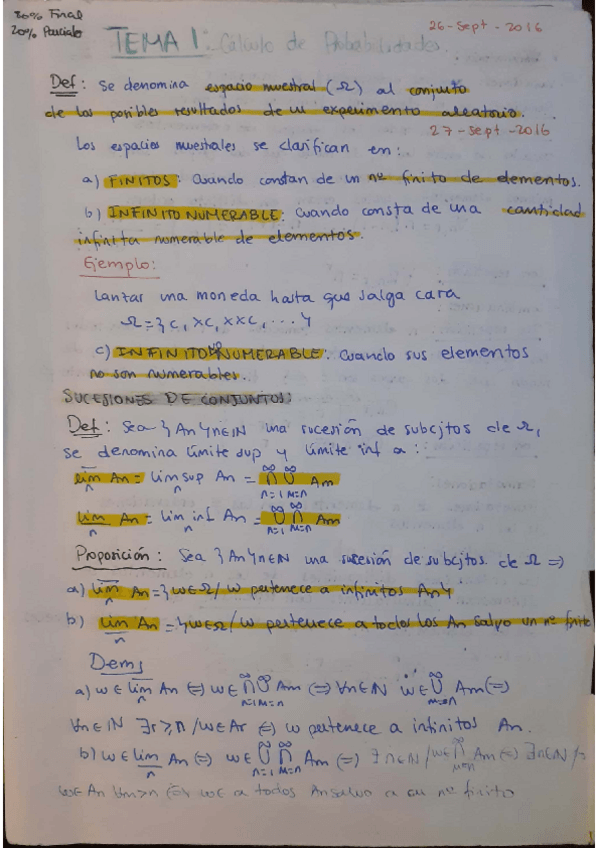 80% Final
20% Parciales
26-Sept-2016
TEMA 1: Cálculo de Probabilidades.
Def: Se denomina espacio muestral (Ω) al conjunto
de los posibles resultados de un experimento aleatorio.
27-Sept-2016
Los espacios muestrales se clasifican en:
a) FINITOS: Cuando constan de un nº finito de elementos.
b) INFINITO NUMERABLE: Cuando consta de una cantidad
infinita numerable de elementos.
Ejemplo:
Lanzar una moneda hasta que salga cara
Ω = {C, XC, XXC, ...}
c) INFINITO NO NUMERABLE: Cuando sus elementos
no son numerables.
SUCESIONES DE CONJUNTOS:
Def: Sea {An}n∈ℕ una sucesión de subcjtos de Ω,
se denomina límite sup y límite inf a:
lim̅ₙ An = lim supₙ An = ⋂_{n=1}^∞ ⋃_{m=n}^∞ Am
lim̲ₙ An = lim infₙ An = ⋃_{n=1}^∞ ⋂_{m=n}^∞ Am
Proposición: Sea {An}n∈ℕ una sucesión de subcjtos de Ω =>
a) lim̅ₙ An = {w∈Ω / w pertenece a infinitos An}
b) lim̲ₙ An = {w∈Ω / w pertenece a todos los An salvo un nº finito
Dem}
a) w∈lim̅ₙ An <=> w∈ ⋂_{n=1}^∞ ⋃_{m=n}^∞ Am <=> ∀n∈ℕ w∈ ⋃_{m=n}^∞ Am <=>
∀n∈ℕ ∃r≥n / w∈Ar <=> w pertenece a infinitos An.
b) w∈lim̲ₙ An <=> w∈ ⋃_{n=1}^∞ ⋂_{m=n}^∞ Am <=> ∃n∈ℕ / w∈ ⋂_{m=n}^∞ Am <=> ∃n∈ℕ /
w∈An ∀m>n <=> w∈ a todos An salvo a un nº finito